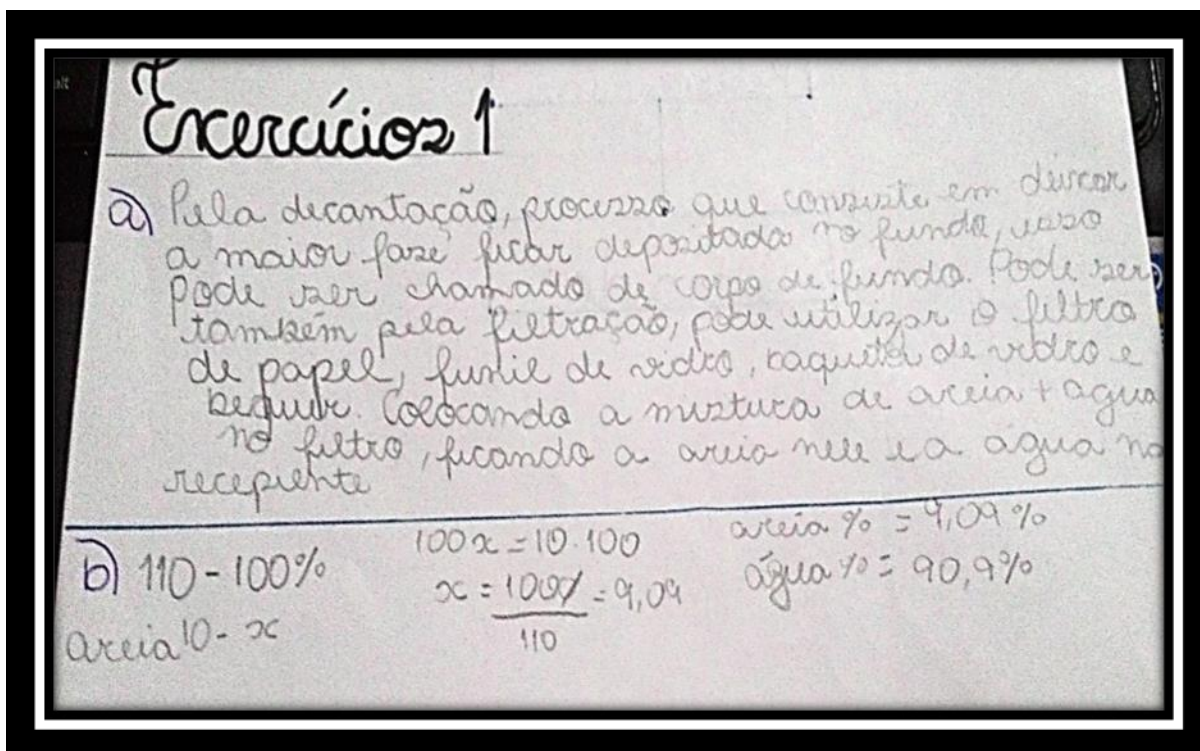 Exercícios 1
a) Pela decantação, processo que consiste em deixar
a maior fase ficar depositada no fundo, isso
pode ser chamado de corpo de fundo. Pode ser
também pela filtração, pode utilizar o filtro
de papel, funil de vidro, baqueta de vidro e
bequer. Colocando a mistura de areia + agua
no filtro, ficando a areia nele e a água no
recepiente
b) 110 - 100%
areia 10 - x
100x = 10.100
x = 1000 = 9,09
110
areia % = 9,09%
água % = 90,9%